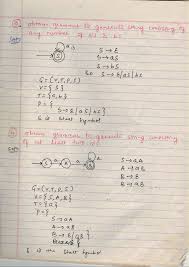 obtain grammar to generate string consisting of
any number of a's & b's
Sol:
S → ε
S → aS
S → bS
So S → ε/aS/bS
G = (V, T, P, S)
V = {S}
T = {a, b}
P = {
S → ε/aS/bS
S is Start Symbol
obtain grammar to generate string consisting
of at least two a's
Sol:
S → aA
A → aB
B → aB
B → ε
G = (V, T, P, S)
V = {S, A, B}
T = {a}
P = {
S → aA
A → aB
S is the start Symbol